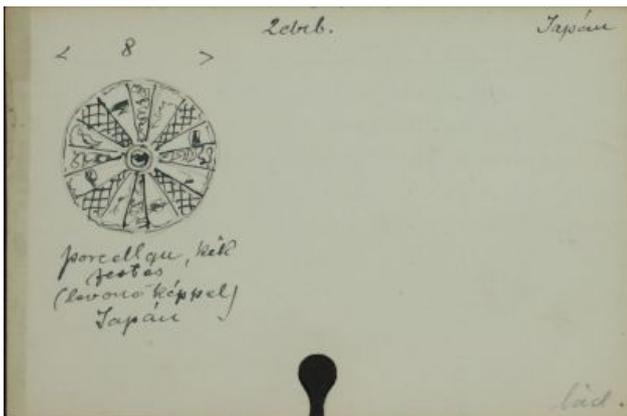 2 drb. Japán
< 8 >
porcellán, kék
festés
(levonó képpel)
Japán
lád.